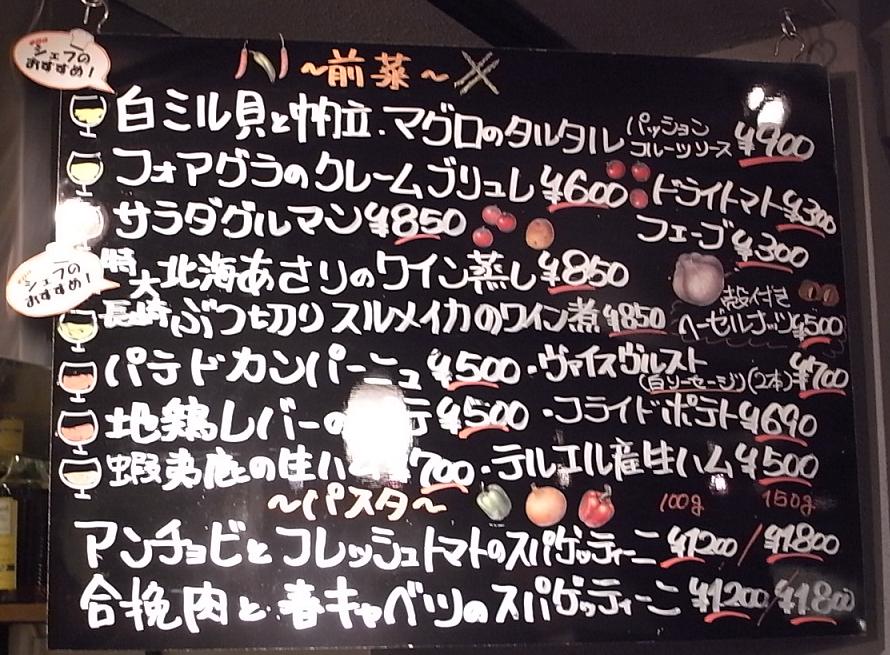 シェフの
おすすめ!
～前菜～
白ミル貝と帆立・マグロのタルタル パッションフルーツソース ¥900
フォアグラのクレームブリュレ ¥600
ドライトマト ¥300
サラダグルマン ¥850
フェーゴ ¥300
シェフの
おすすめ!
特大 北海あさりのワイン蒸し ¥850
殻付き
ヘーゼルナッツ ¥500
長崎 ぶつ切りスルメイカのワイン煮 ¥850
パテドカンパーニュ ¥500
・ヴァイスヴルスト
(白ソーセージ)(2本) ¥700
地鶏レバーの テ ¥500
・フライドポテト ¥690
蝦夷鹿の生ハム ¥700
・テルエル産生ハム ¥500
～パスタ～
100g 150g
アンチョビとフレッシュトマトのスパゲッティーニ ¥1200/¥1800
合挽肉と春キャベツのスパゲッティーニ ¥1200/¥1800